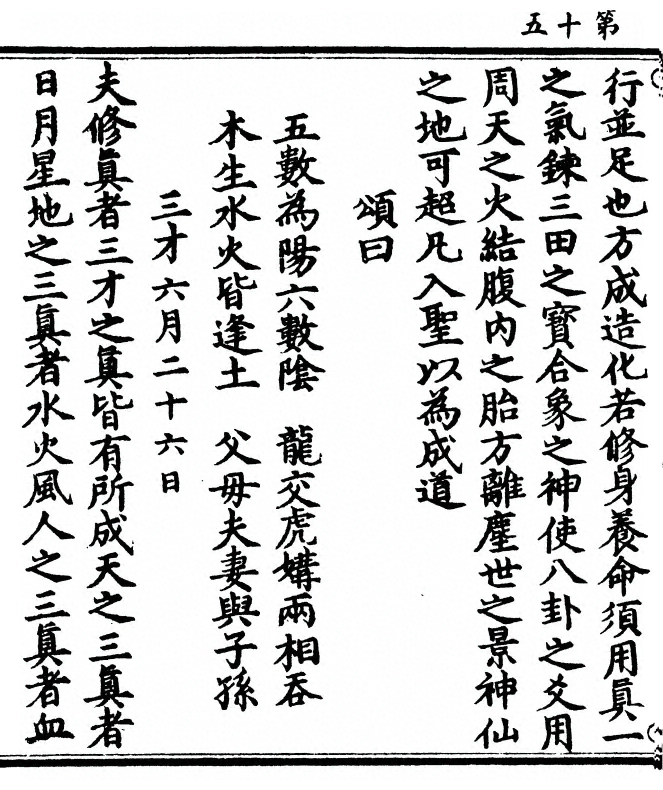 第十五
行並足也方成造化若修身養命須用真一
之氣鍊三田之寶合象之神使八卦之爻用
周天之火結腹內之胎方離塵世之景神仙
之地可超凡入聖以為成道
頌曰
五數為陽六數陰　龍交虎媾兩相吞
木生水火皆逢土　父母夫妻與子孫
三才六月二十六日
夫修真者三才之真皆有所成天之三真者
日月星地之三真者水火風人之三真者血